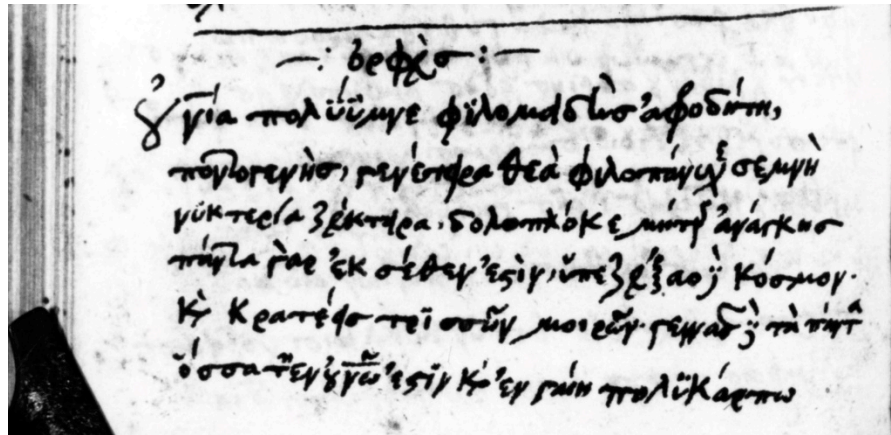 —: ὀρφὲωσ :—
οὐνία πολϋΰμνε φϊλομαδὴσ ἀφοδήτη,
ποντογενὴσ, γενέτηρα θεὰ φιλοπάνυχε σεμνὴ
νϋκτερία ζεύκτηρα. δολοπλόκε μήτηρ ἀνάγκησ
πάντα γὰρ ἐκ σέθεν ἐστὶν, ὕπεζεύξαο δὲ κόσμον.
κὶ κρατέεισ τρϊσσῶν μοιρῶν. γεννᾶσ δὲ τὰ πάντα
ὅσσα τ' ἐν οὐνῶ ἐστὶν κὶ ἐν γαίη πολϋκάρπω